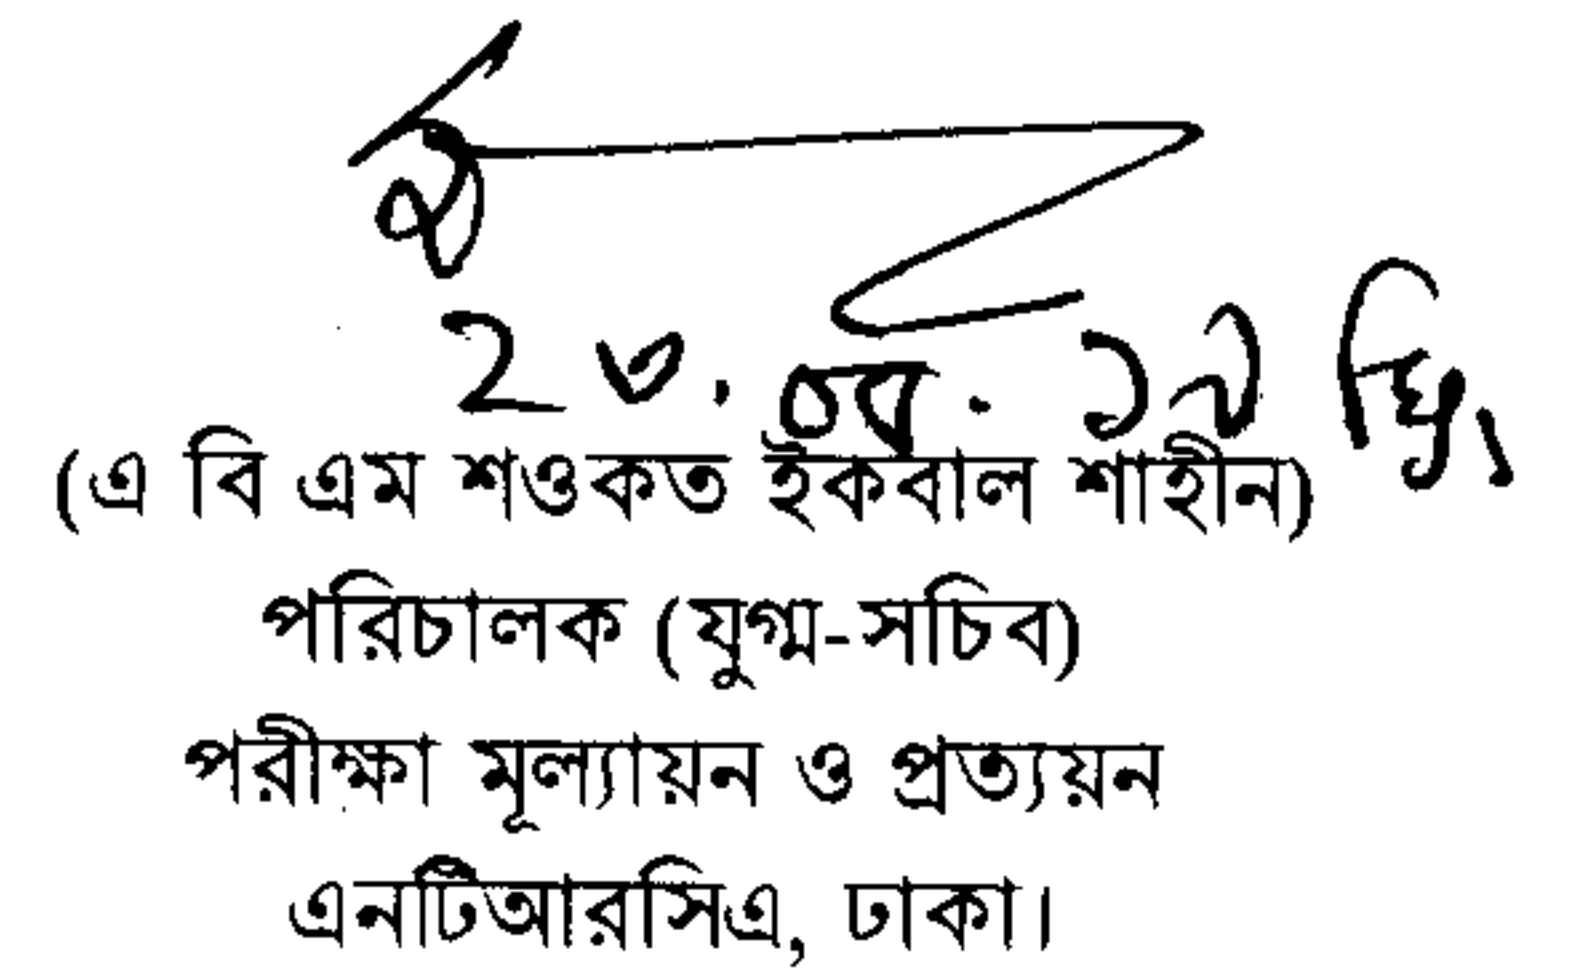 ২৩.০৭.১৯ খ্রি.
(এ বি এম শওকত ইকবাল শাহীন)
পরিচালক (যুগ্ম-সচিব)
পরীক্ষা মূল্যায়ন ও প্রত্যয়ন
এনটিআরসিএ, ঢাকা।